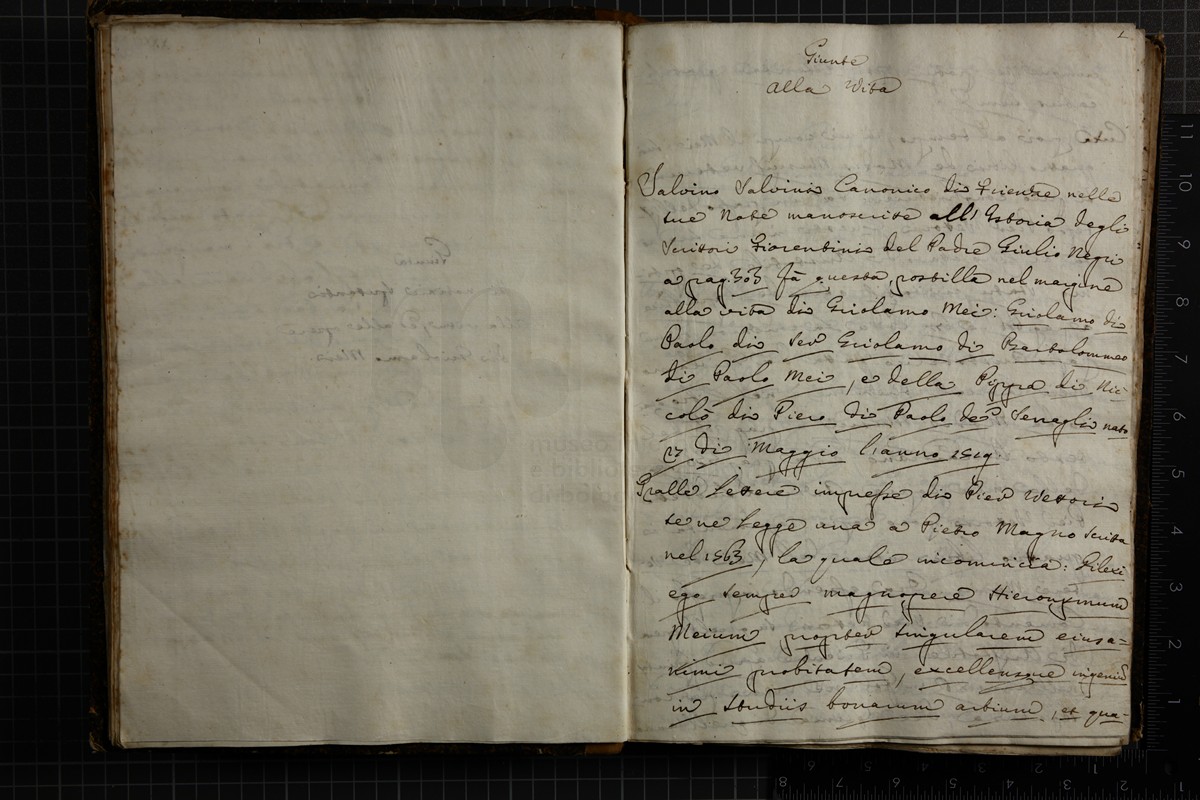 1
Giunte
alla Vita
Salvino Salvini Canonico di Firenze nelle
sue Note manoscritte all'Istoria degli
Scrittori Fiorentini del Padre Giulio Negri
a pag. 303 fà questa postilla nel margine
alla vita di Girolamo Mei: Girolamo di
Paolo di Ser Girolamo di Bartolommeo
di Paolo Mei, e della Pippa di Nic-
colò di Piero di Paolo del Serraglio nato
27 di Maggio l'anno 1519.
Tralle Lettere impresse di Pier Vettori
se ne legge una a Pietro Magno scritta
nel 1563, la quale incomincia: Dilexi
ego semper magnopere Hieronymum
Meium propter singularem eius a-
nimi probitatem, excellensque ingenium
in studiis bonarum artium, et qua-